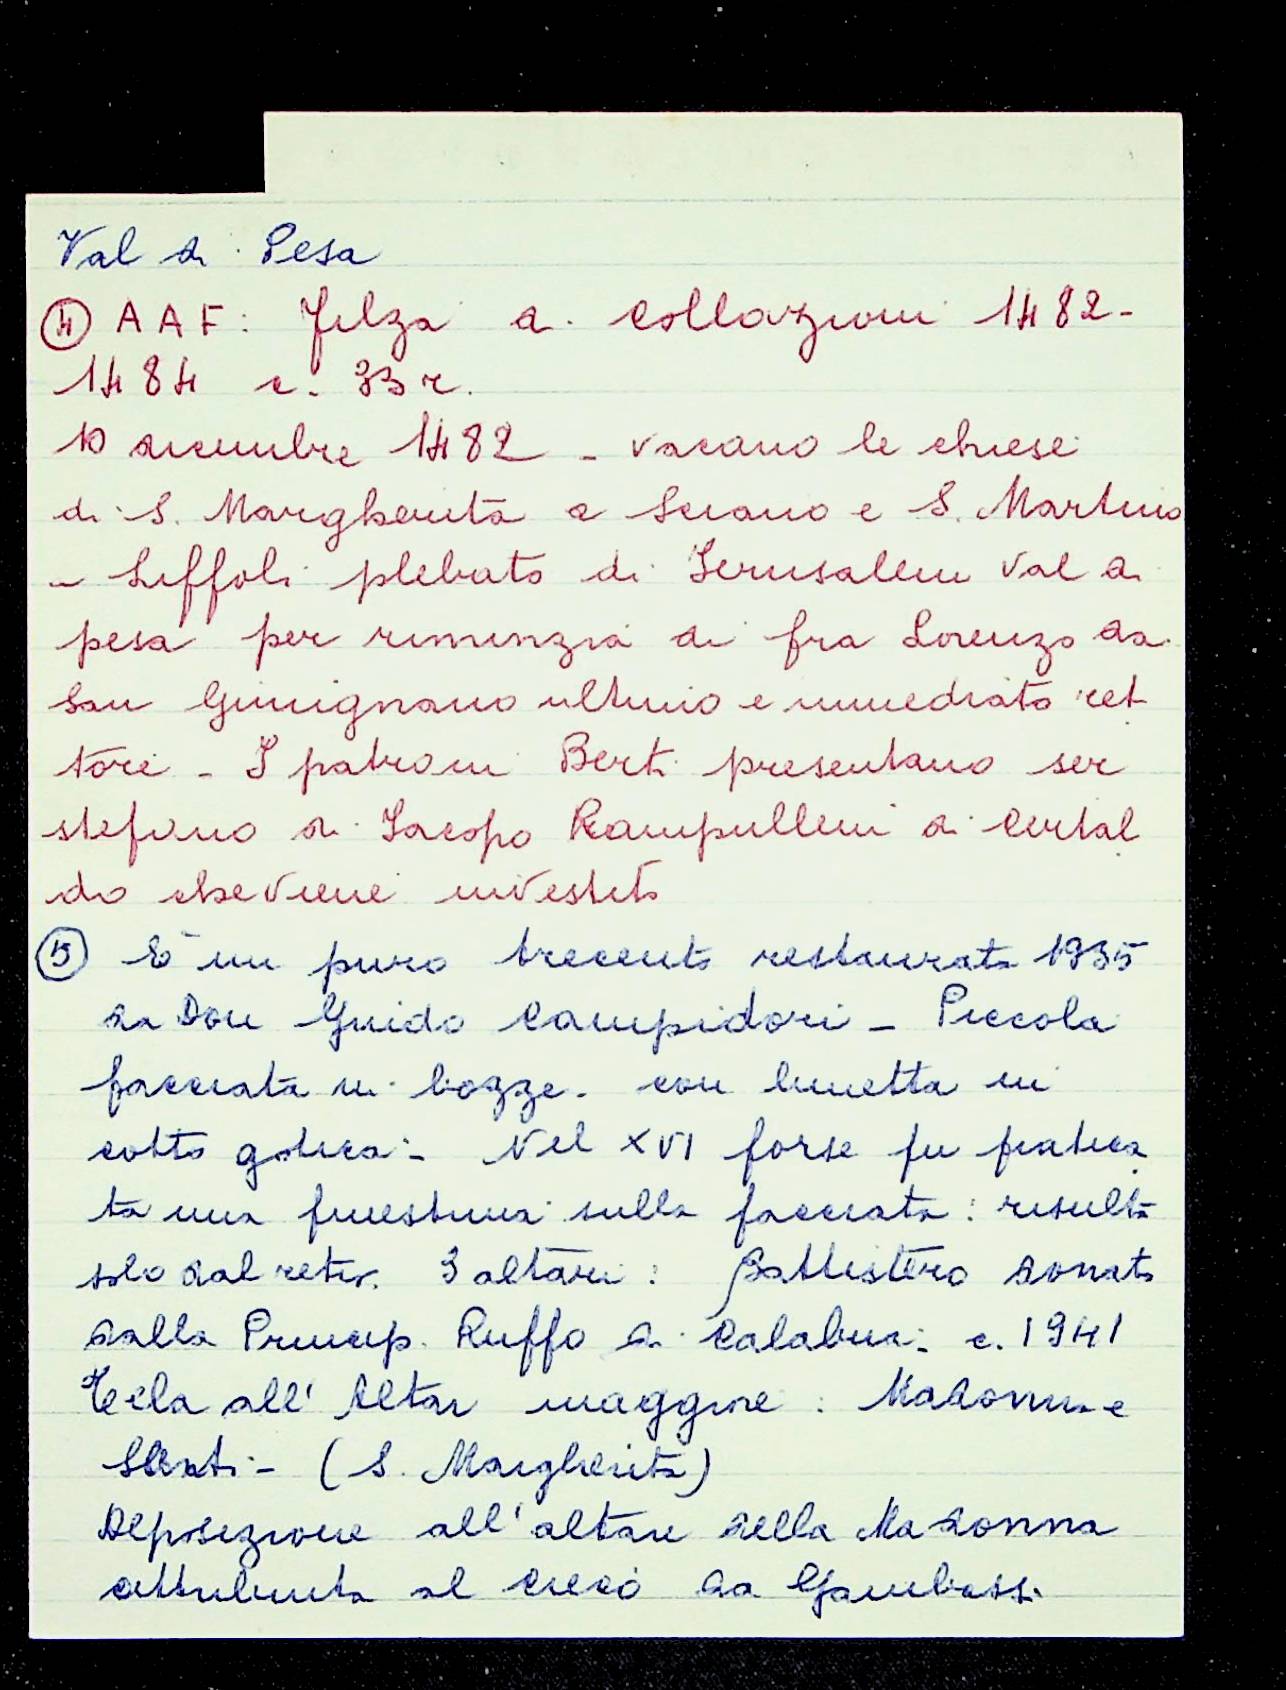 Val di Pesa
④ AAF: Filza di Collazioni 1482-
1484 c. 33 r.
10 dicembre 1482 - vacano le chiese
di S. Margherita a Sciano e S. Martino
a Luffoli plebato di Jerusalem Val di
pesa per rinunzia di fra Lorenzo da
San Gimignano ultimo e immediato ret
tore - I patroni Berti presentano ser
stefano di Jacopo Rampullini di Certal
do che viene investito
⑤ È un puro trecento restaurato 1935
da Don Guido Campidori - Piccola
facciata in bozze. con lunetta in
cotto gotica - Nel XVI forse fu pratica
ta una finestrina sulla facciata: risulta
solo dal retro. 3 altari: Battistero donato
dalla Princip. Ruffo di Calabria - c. 1941
Tela all'Altar maggiore: Madonna e
Santi - (S. Margherita)
Deposizione all'altare della Madonna
attribuita al Cieco da Gambassi